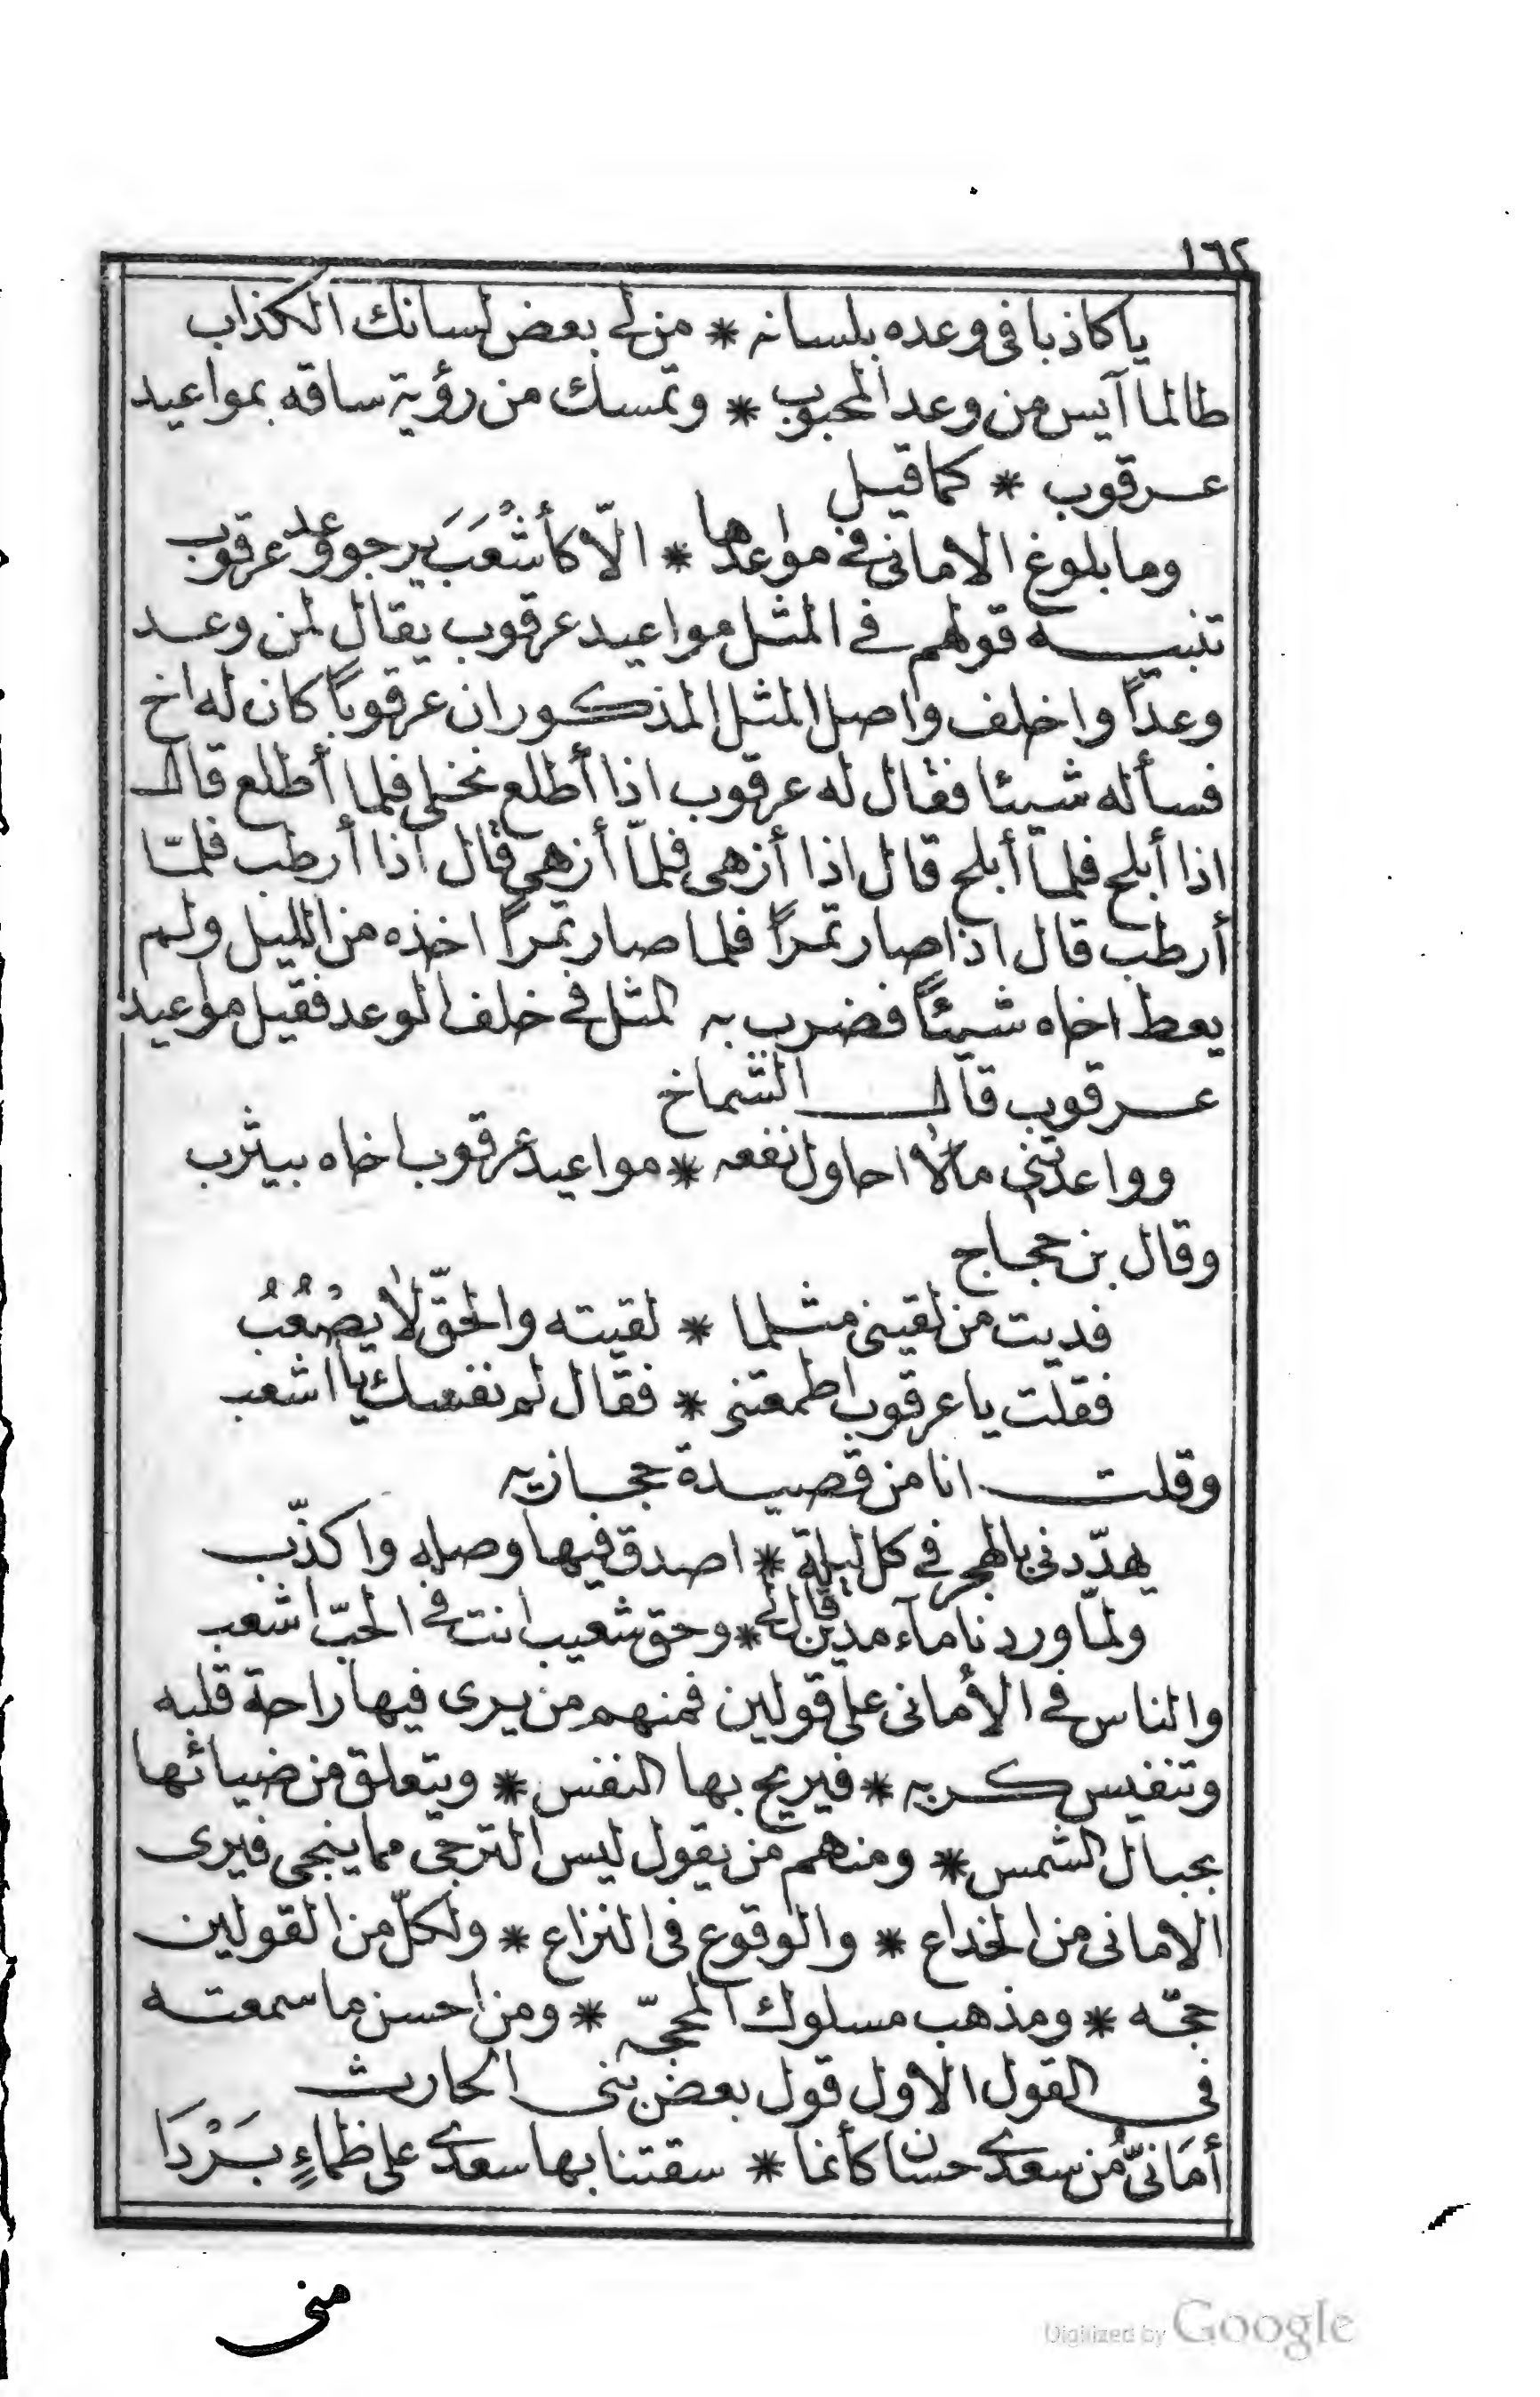 ١٦٢
ياكاذبا فى وعده بلسانه * من لى بعض لسانك الكذاب
طالما آيس من وعد المحبوب * وتمسك من رؤية ساقه بمواعيد
عرقوب * كما قيل
وما بلوغ الامانى فى مواعدها * الّا كأَشْعَبَ يَرجو وعد عرقوب
تنبيه قولهم فى المثل مواعيد عرقوب يقال لمن وعد
وعداً واخلف واصل المثل المذكور ان عرقوباً كان له اخ
فسأله شيئا فقال له عرقوب اذا أطلع نخلى فلما أطلع قال
اذا أبلح فلمّا أبلح قال اذا أزهى فلمّا أزهى قال اذا أرطب فلمّا
أرطب قال اذا صار تمراً فلما صار تمراً اخذه من الليل ولم
يعط اخاه شيئاً فضرب به المثل فى خلف الوعد فقيل مواعيد
عرقوب قال الشماخ
وواعدتنى مالا احاول نفعه * مواعيد عرقوب اخاه بيثرب
وقال بن حجاج
فديت من لقينى مثلما * لقيته والحقّ لا يصْعُبُ
فقلت يا عرقوب اطمعتنى * فقال لم نفسك يا اشعب
وقلت انا من قصيدة حجازيه
يهدّدنى بالهجر فى كل ليلة * اصدق فيها وصله واكذّب
ولمّا وردنا مآء مدين قال لى * وحق شعيب انت فى الحبّ اشعب
والناس فى الأمانى على قولين فمنهم من يرى فيها راحة قلبه
وتنفيس كربه * فيريح بها النفس * ويتعلق من ضيائها
بحبال الشمس * ومنهم من يقول ليس الترجى مما ينجى فيرى
الامانى من الخداع * والوقوع فى النزاع * ولكلّ من القولين
حجّه * ومذهب مسلوك المحجّه * ومن احسن ما سمعته
فى القول الاول قول بعض بنى الحارث
أمَانىُّ من سعدى حسان كأنما * سقتنا بها سعدى على ظماءٍ بَرْدَا
منى
Digitized by Google